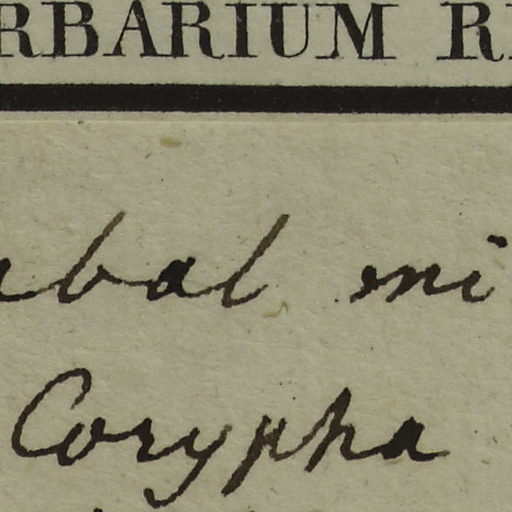 RBARIUM R
abal mi
Corypha